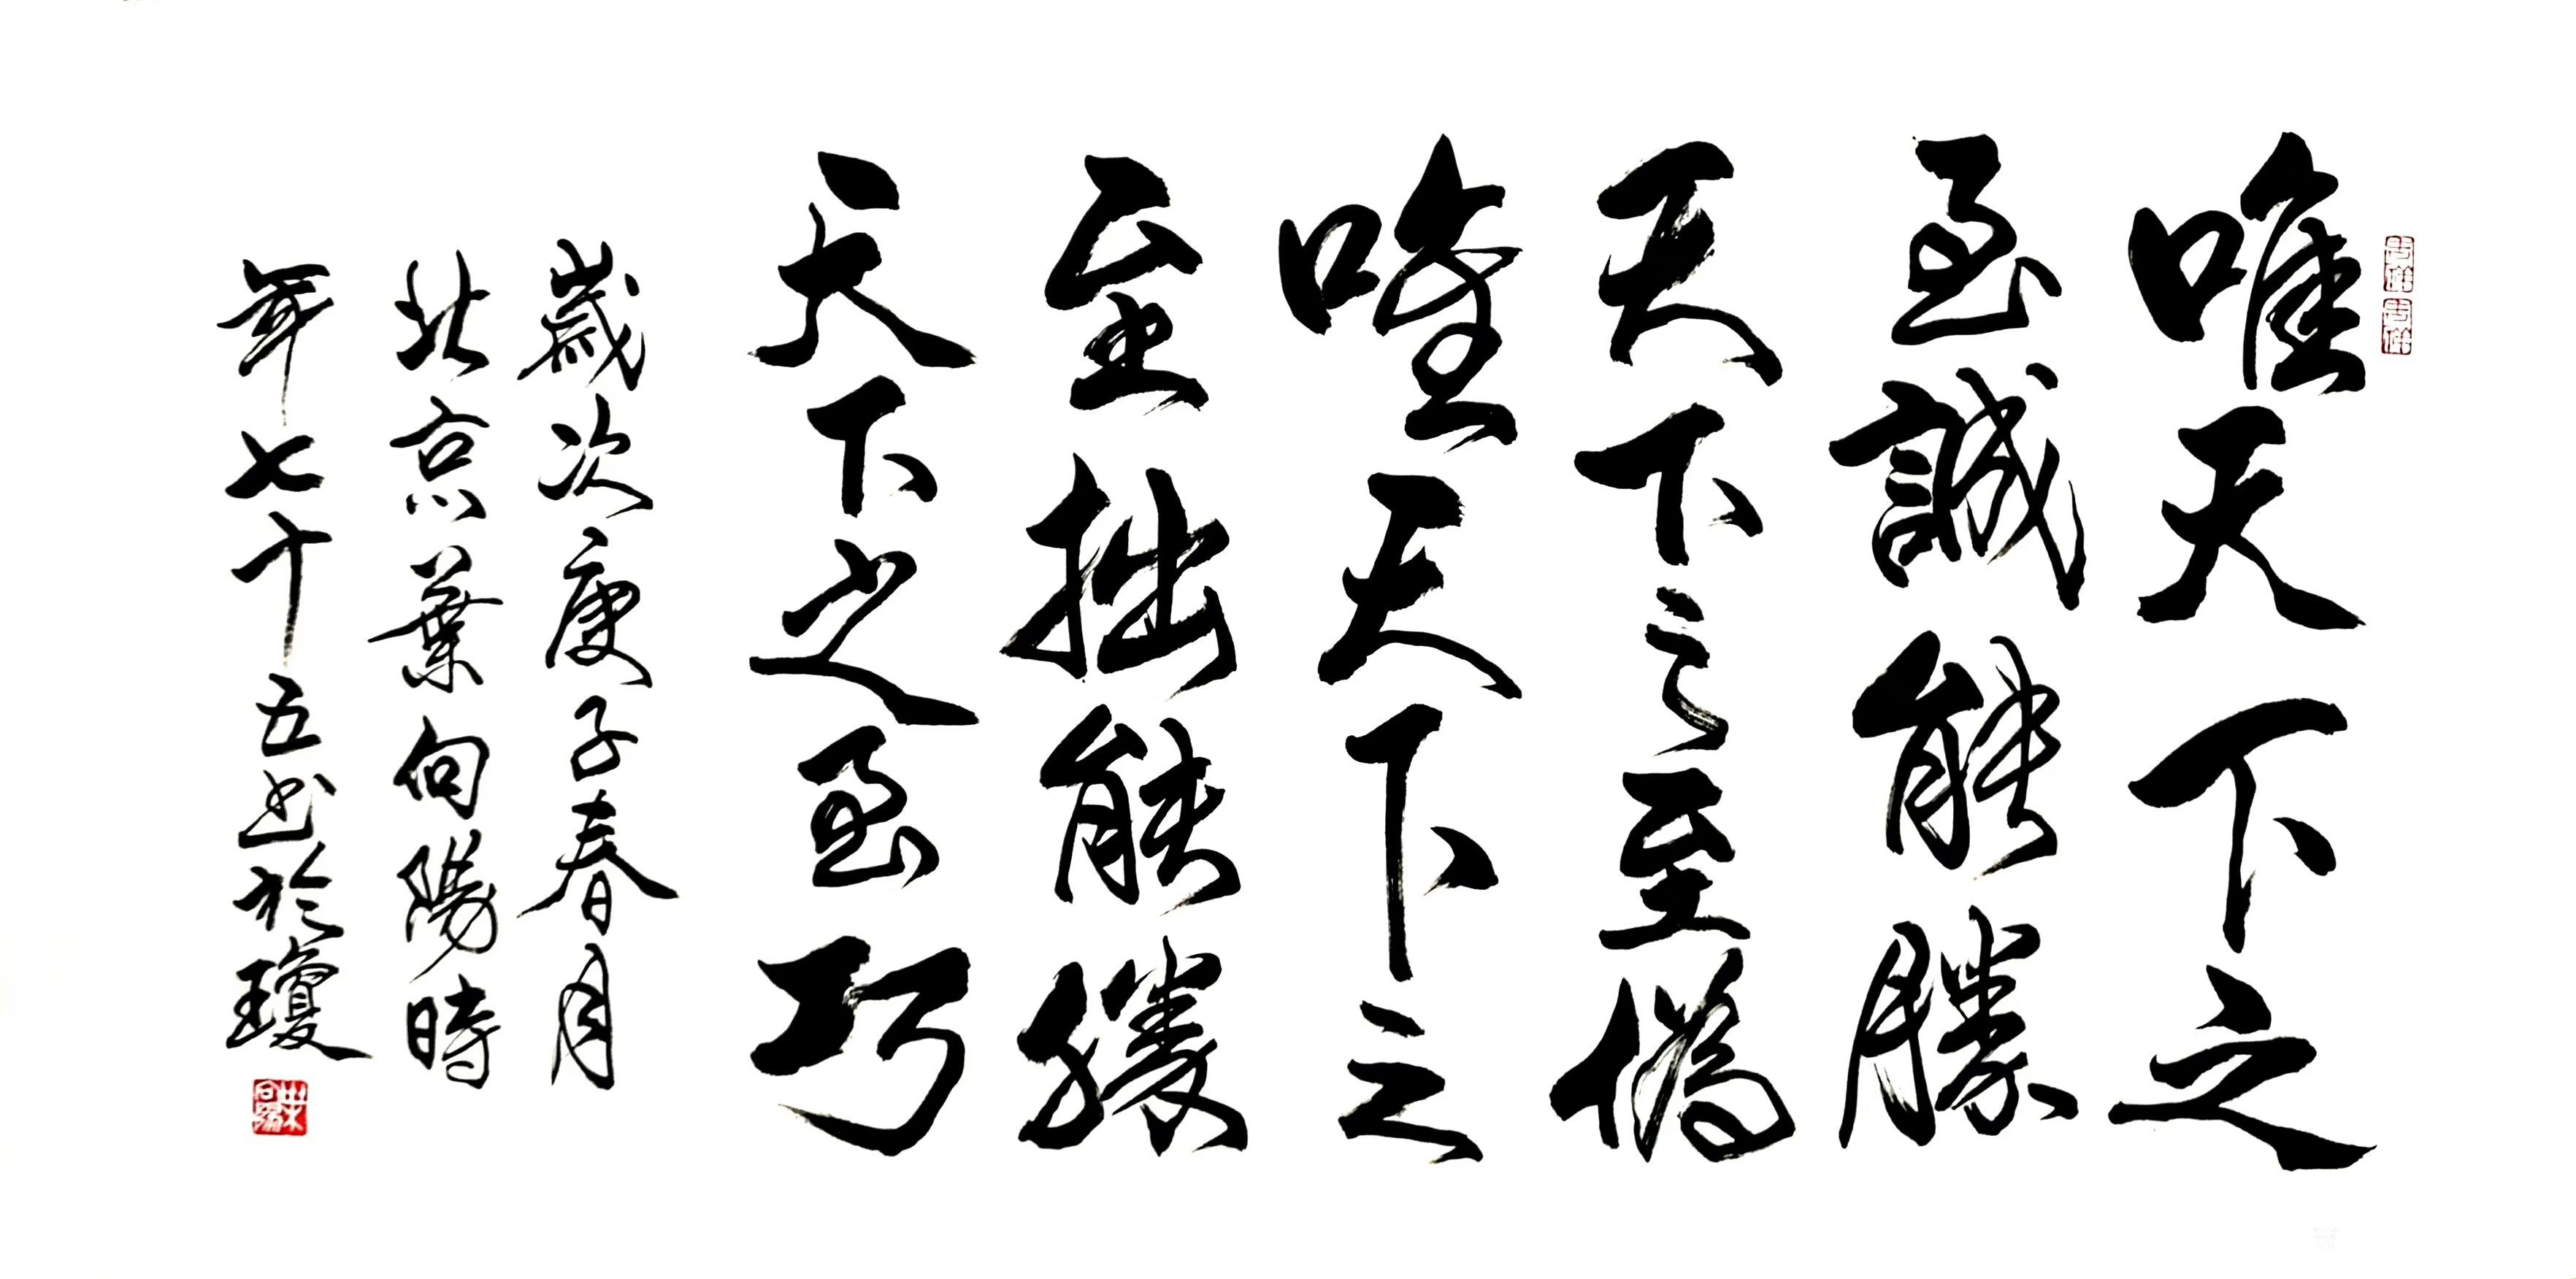 唯天下之
至誠能勝
天下之至僞
唯天下之
至拙能勝
天下之至巧
歲次庚子春月
北京葉向陽時
年七十五書於瓊
吉祥
吉祥
葉向陽